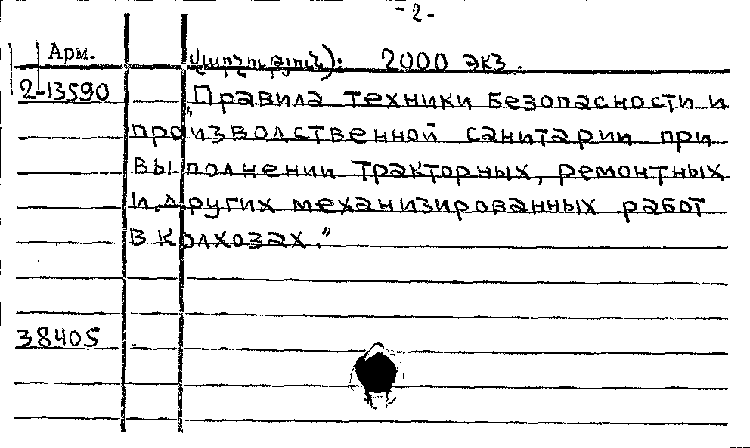 - 2 -
Арм. վարչություն): 2000 экз.
2-13590 „Правила техники безопасности и
производственной санитарии при
выполнении тракторных, ремонтных
и других механизированных работ
в колхозах."
38405